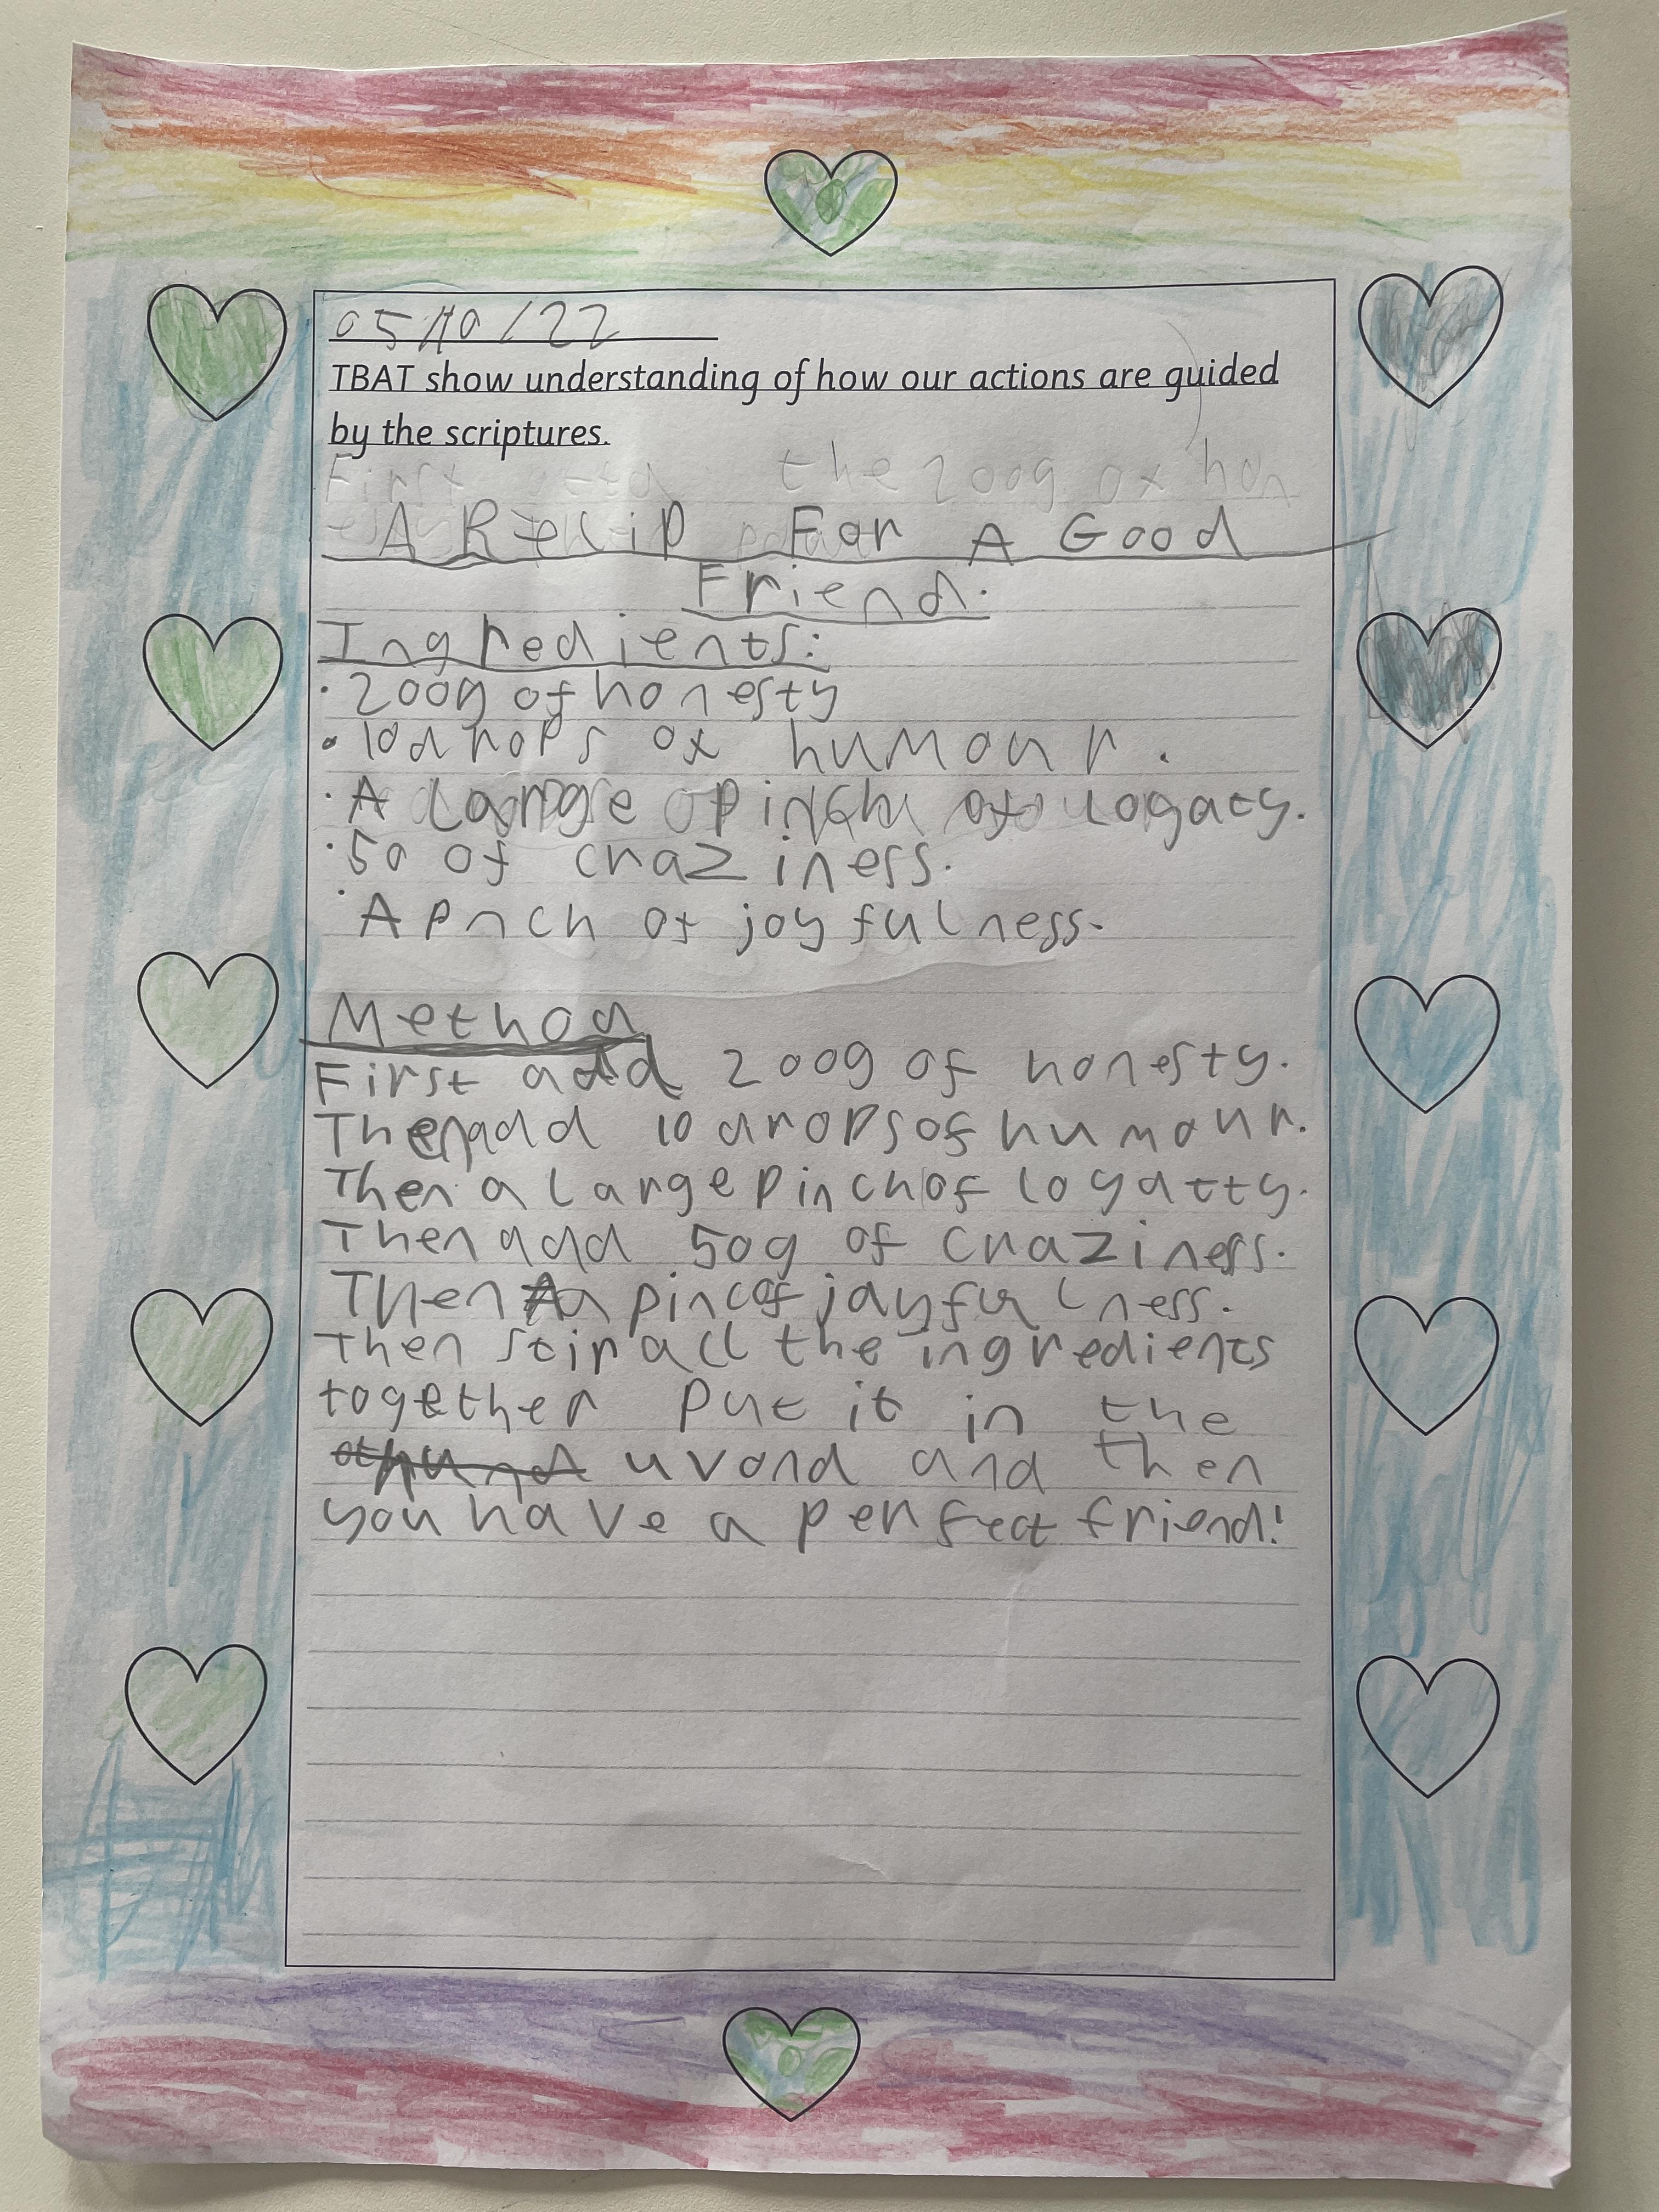 05/10/22
TBAT show understanding of how our actions are guided
by the scriptures.
First the 200g ox hon
A Recip For A Good
Friend.
Ingredients:
· 200g of honesty
· 10 drops ox humour.
· A Large pinch of Loyalty.
· 50 of craziness.
· A pnch of joyfulness.
Method
First add 200g of honesty.
Then add 10 drops of humour.
Then a large pinch of loyaltty.
Then add 50g of craziness.
Then a pinc of jayfulness.
Then stir all the ingredients
together put it in the
uvond and then
you have a perfect friend!